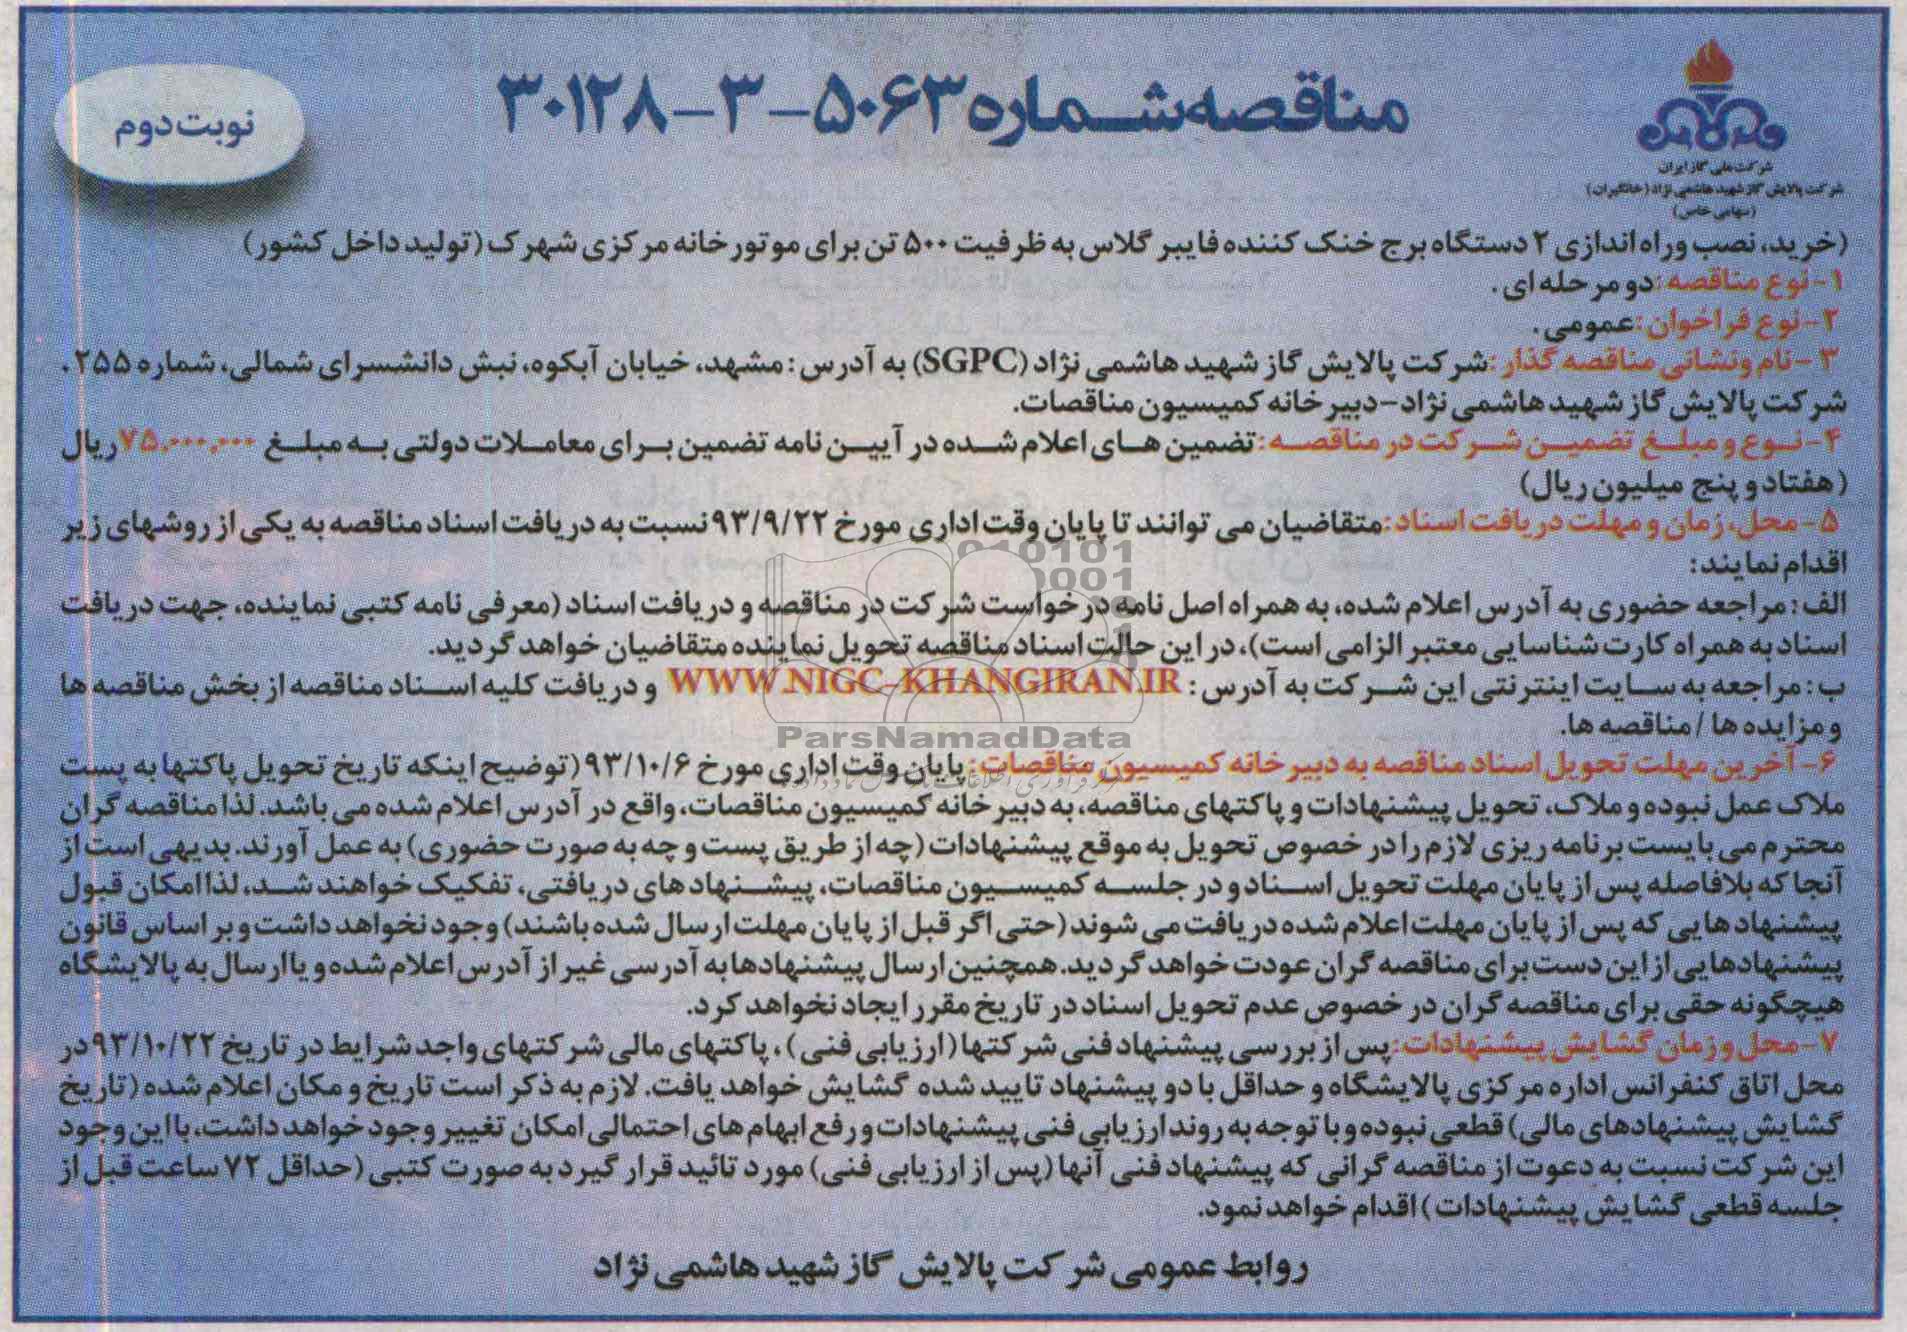 شرکت ملی گاز ایران
شرکت پالایش گاز شهید هاشمی نژاد (خانگیران)
(سهامی خاص)
مناقصه شماره ۵۰۶۳-۳-۳۰۱۲۸
نوبت دوم
(خرید، نصب و راه اندازی ۲ دستگاه برج خنک کننده فایبر گلاس به ظرفیت ۵۰۰ تن برای موتورخانه مرکزی شهرک (تولید داخل کشور)
۱-نوع مناقصه: دو مرحله ای.
۲-نوع فراخوان: عمومی.
۳-نام ونشانی مناقصه گذار: شرکت پالایش گاز شهید هاشمی نژاد (SGPC) به آدرس: مشهد، خیابان آبکوه، نبش دانشسرای شمالی، شماره ۲۵۵.
شرکت پالایش گاز شهید هاشمی نژاد-دبیرخانه کمیسیون مناقصات.
۴-نوع و مبلغ تضمین شرکت در مناقصه: تضمین های اعلام شده در آیین نامه تضمین برای معاملات دولتی به مبلغ ۷۵،۰۰۰،۰۰۰ ریال
(هفتاد و پنج میلیون ریال)
۵-محل، زمان و مهلت دریافت اسناد: متقاضیان می توانند تا پایان وقت اداری مورخ ۹۳/۹/۲۲ نسبت به دریافت اسناد مناقصه به یکی از روشهای زیر
اقدام نمایند:
الف: مراجعه حضوری به آدرس اعلام شده، به همراه اصل نامه درخواست شرکت در مناقصه و دریافت اسناد (معرفی نامه کتبی نماینده، جهت دریافت
اسناد به همراه کارت شناسایی معتبر الزامی است)، در این حالت اسناد مناقصه تحویل نماینده متقاضیان خواهد گردید.
ب: مراجعه به سایت اینترنتی این شرکت به آدرس: WWW.NIGC-KHANGIRAN.IR و دریافت کلیه اسناد مناقصه از بخش مناقصه ها
و مزایده ها / مناقصه ها.
۶-آخرین مهلت تحویل اسناد مناقصه به دبیرخانه کمیسیون مناقصات: پایان وقت اداری مورخ ۹۳/۱۰/۶ (توضیح اینکه تاریخ تحویل پاکتها به پست
ملاک عمل نبوده و ملاک، تحویل پیشنهادات و پاکتهای مناقصه، به دبیرخانه کمیسیون مناقصات، واقع در آدرس اعلام شده می باشد. لذا مناقصه گران
محترم می بایست برنامه ریزی لازم را در خصوص تحویل به موقع پیشنهادات (چه از طریق پست و چه به صورت حضوری) به عمل آورند. بدیهی است از
آنجا که بلافاصله پس از پایان مهلت تحویل اسناد و در جلسه کمیسیون مناقصات، پیشنهادهای دریافتی، تفکیک خواهند شد، لذا امکان قبول
پیشنهادهایی که پس از پایان مهلت اعلام شده دریافت می شوند (حتی اگر قبل از پایان مهلت ارسال شده باشند) وجود نخواهد داشت و بر اساس قانون
پیشنهادهایی از این دست برای مناقصه گران عودت خواهد گردید. همچنین ارسال پیشنهادها به آدرسی غیر از آدرس اعلام شده و یا ارسال به پالایشگاه
هیچگونه حقی برای مناقصه گران در خصوص عدم تحویل اسناد در تاریخ مقرر ایجاد نخواهد کرد.
۷-محل و زمان گشایش پیشنهادات: پس از بررسی پیشنهاد فنی شرکتها (ارزیابی فنی)، پاکتهای مالی شرکتهای واجد شرایط در تاریخ ۹۳/۱۰/۲۲ در
محل اتاق کنفرانس اداره مرکزی پالایشگاه و حداقل با دو پیشنهاد تایید شده گشایش خواهد یافت. لازم به ذکر است تاریخ و مکان اعلام شده (تاریخ
گشایش پیشنهادهای مالی) قطعی نبوده و با توجه به روند ارزیابی فنی پیشنهادات و رفع ابهام های احتمالی امکان تغییر وجود خواهد داشت، با این وجود
این شرکت نسبت به دعوت از مناقصه گرانی که پیشنهاد فنی آنها (پس از ارزیابی فنی) مورد تائید قرار گیرد به صورت کتبی (حداقل ۷۲ ساعت قبل از
جلسه قطعی گشایش پیشنهادات) اقدام خواهد نمود.
روابط عمومی شرکت پالایش گاز شهید هاشمی نژاد
ParsNamadData